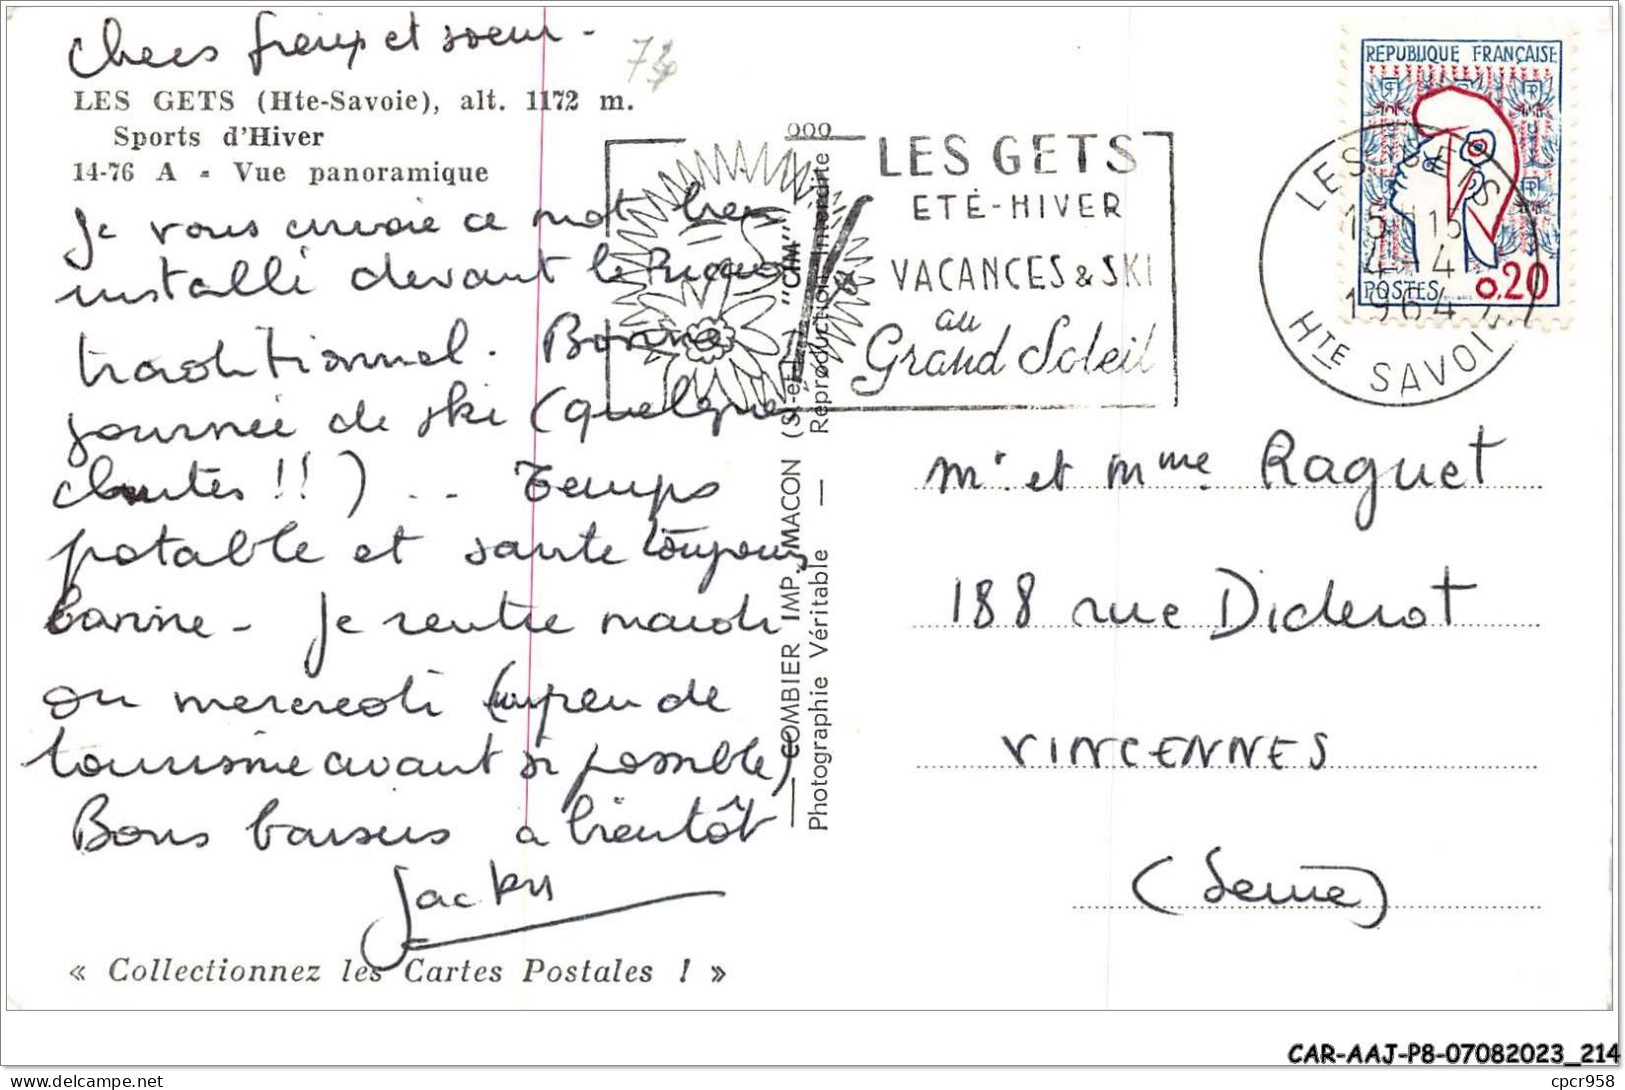 Chers frère et soeur -
74
LES GETS (Hte-Savoie), alt. 1172 m.
Sports d'Hiver
14-76 A - Vue panoramique
Je vous envoie ce mot bien
installé devant le
traditionnel. Bonne
journée de ski (quelques
chutes !!) .. Temps
potable et santé toujours
bonne - Je rentre mardi
ou mercredi (un peu de
tourisme avant si possible)
Bons baisers à bientôt
Jacky
« Collectionnez les Cartes Postales ! »
COMBIER IMP. MACON (S.-et-L.) "CIM"
Photographie Véritable — Reproduction interdite
LES GETS
ETÉ-HIVER
VACANCES & SKI
au
Grand Soleil
REPUBLIQUE FRANÇAISE
POSTES 0,20
LES GETS
15 H 15
4-4
1964
HTE SAVOIE
Mr. et Mme Raguet
188 rue Diderot
VINCENNES
(Seine)
CAR-AAJ-P8-07082023_214
delcampe.net
cpcr958